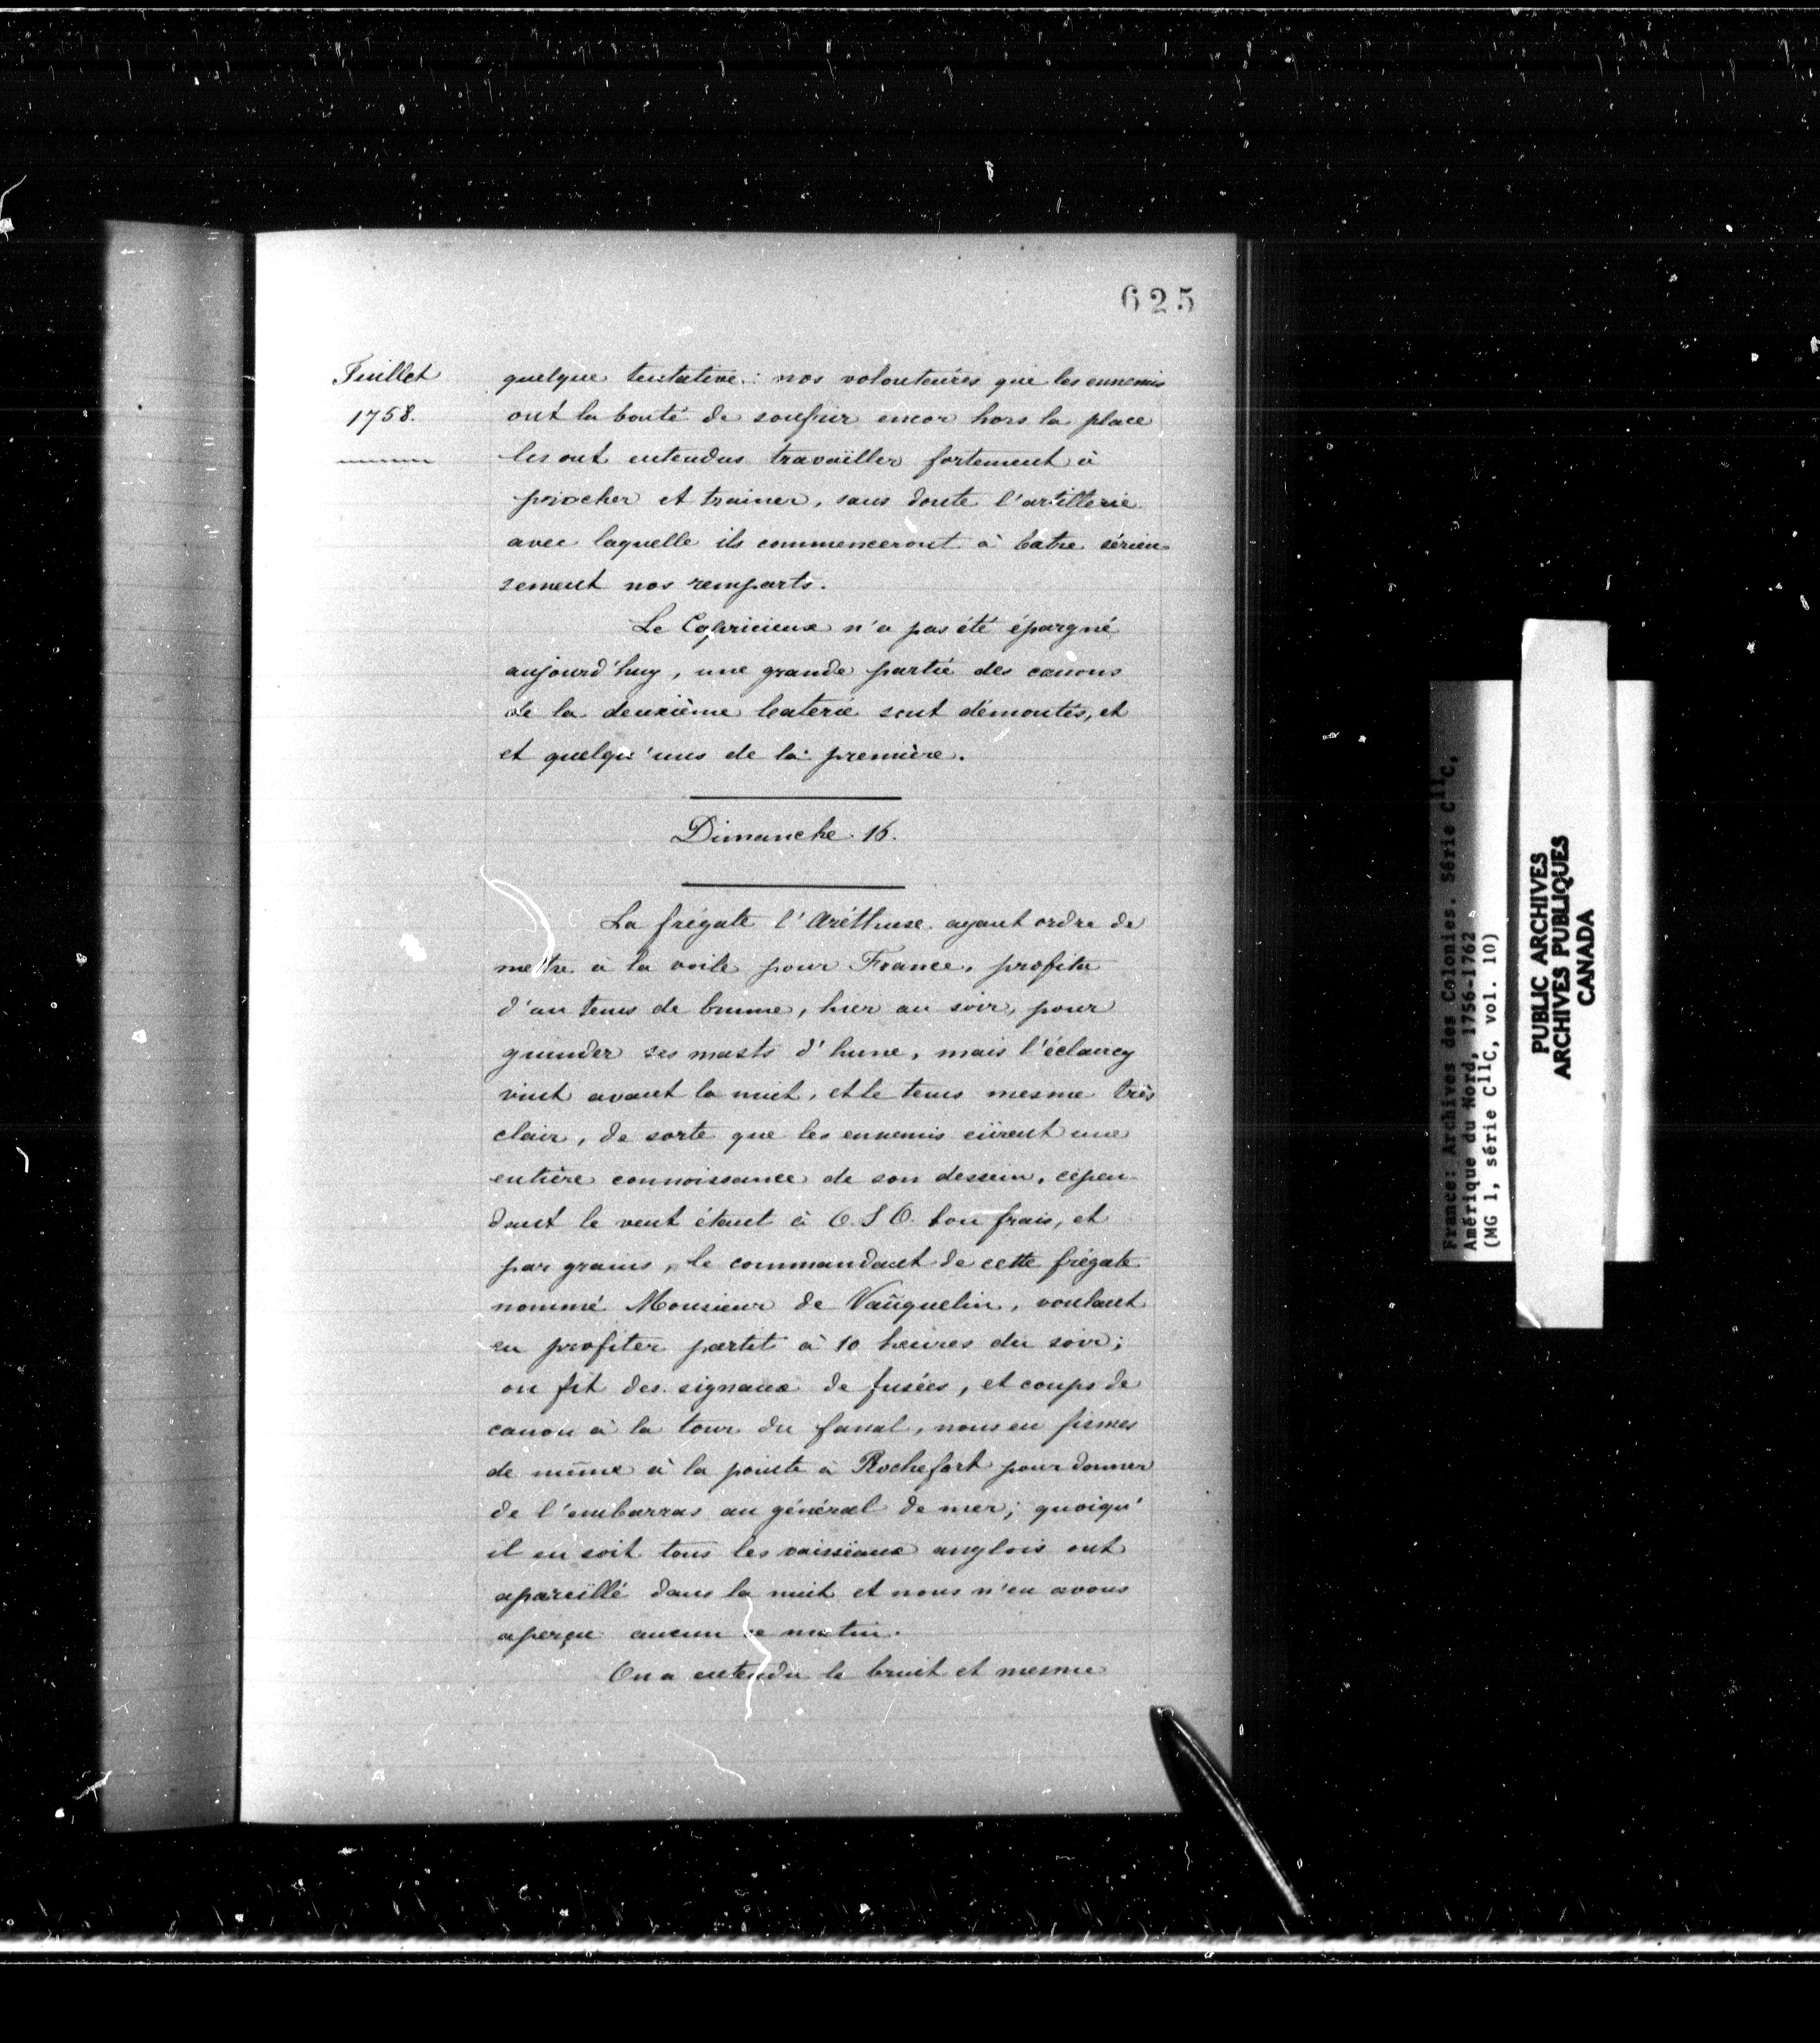 625
Juillet
1758.
quelque tentative : nos volontaires que les ennemis
ont la bonté de soufrir encor hors la place
les ont entendus travaïller fortement à
piocher et trainer, sans doute l'artillerie
avec laquelle ils commenceront à batre sérieu-
sement nos remparts.
Le Capricieux n'a pas été épargné
aujourd'huy, une grande partie des canons
de la deuxième baterie sont démontés, et
et quelqu'uns de la première.
Dimanche 16.
La frégate l'Aréthuse ayant ordre de
mettre à la voile pour France, profita
d'un tems de brume, hier au soir, pour
guinder ses masts d'hune, mais l'éclaircy
vint avant la nuit, et le tems mesme très
clair, de sorte que les ennemis eürent une
entière connoissance de son dessein, cepen
dant le vent étant à O.S.O. bon frais, et
par grains, le commandant de cette frégate
nommé Monsieur de Vaüquelin, voulant
en profiter partit à 10 heures du soir;
on fit des signaux de fusées, et coups de
canon à la tour du fanal, nous en fismes
de même à la pointe à Rochefort pour donner
de l'embarras au général de mer; quoiqu'
il en soit tous les vaisseaux anglois ont
apareïllé dans la nuit et nous n'en avons
aperçu aucun ce matin.
On a entendu le bruit et mesme
France: Archives des Colonies. Série C11C,
Amérique du Nord, 1756-1762
(MG 1, série C11C, vol. 10)
PUBLIC ARCHIVES
ARCHIVES PUBLIQUES
CANADA